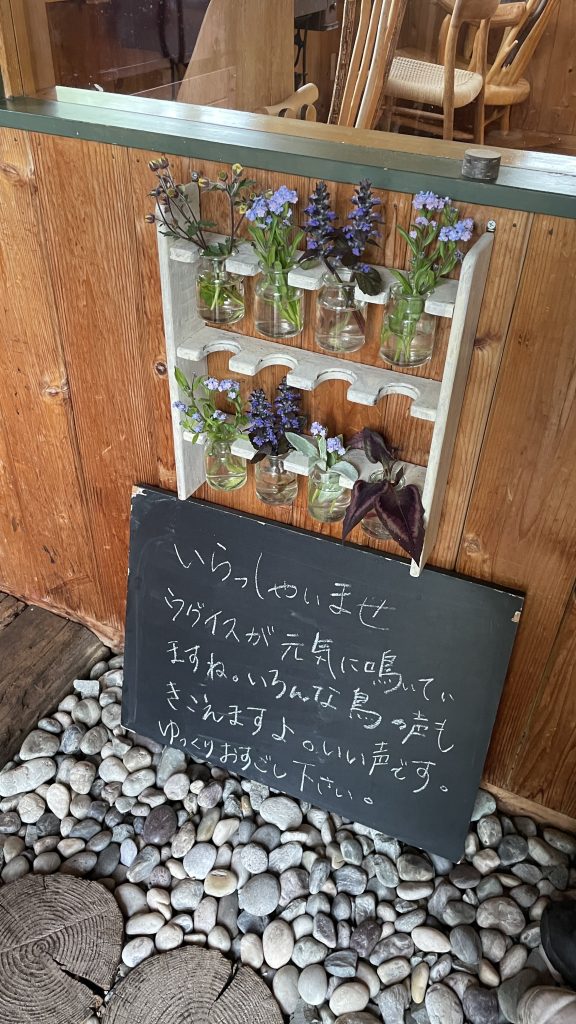 いらっしゃいませ
ウグイスが元気に鳴いてい
ますね。いろんな鳥の声も
きこえますよ。いい声です。
ゆっくりおすごし下さい。